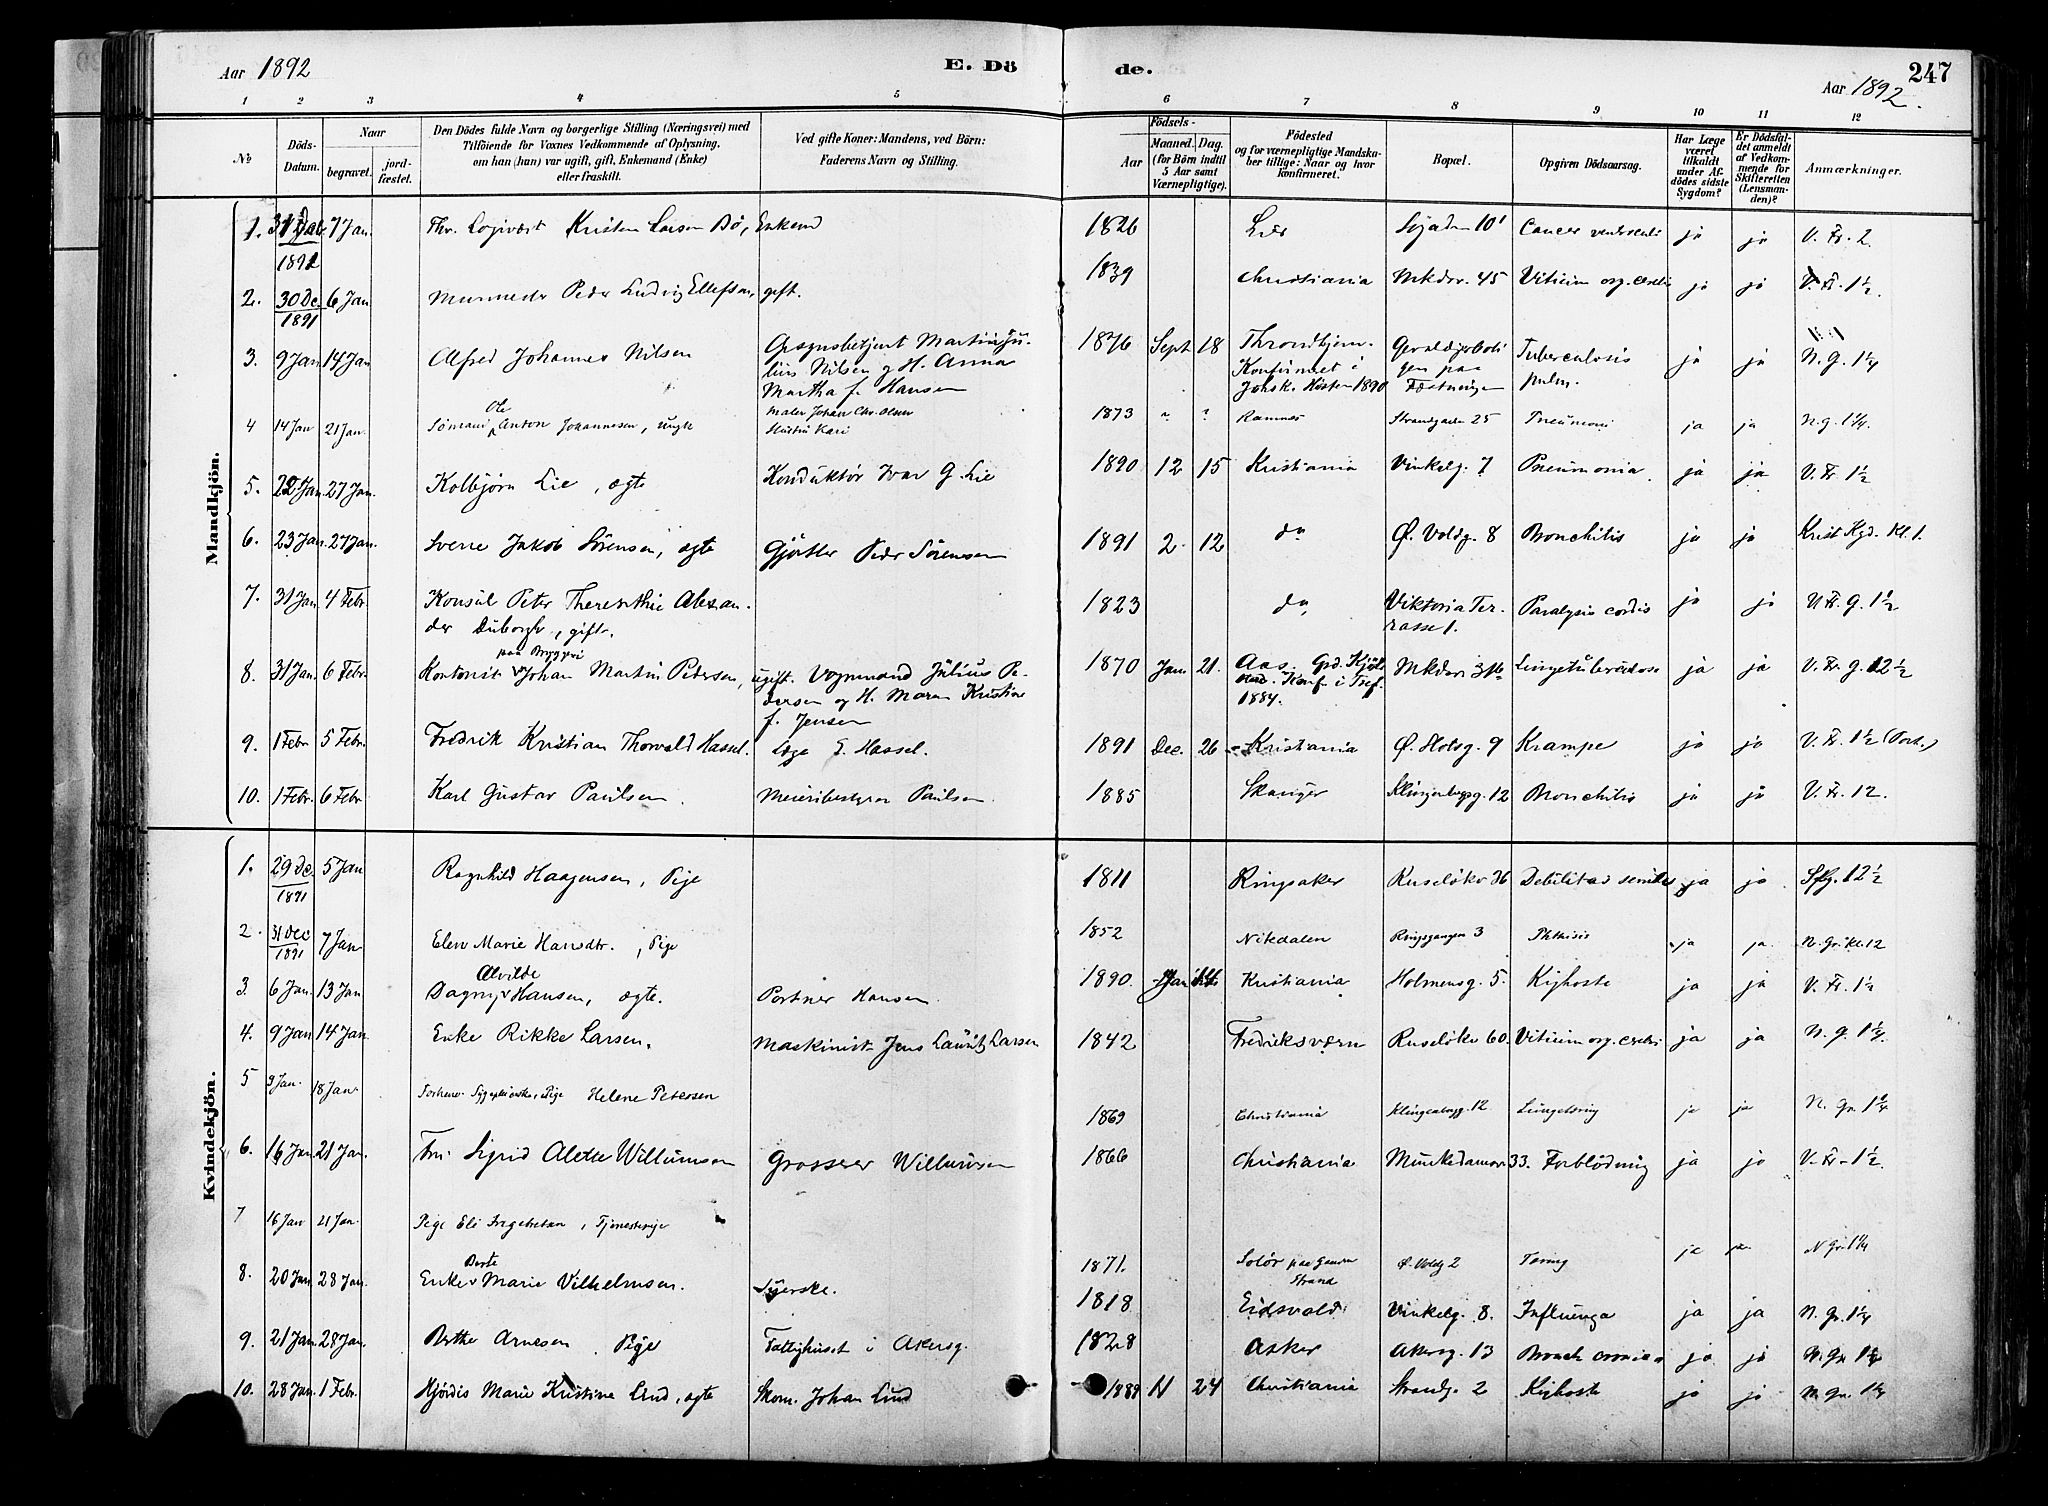 Aar 1892
E. Dö
de.
247
Aar 1892.
1 2 3 4 5 6 7 8 9 10 11 12
№
Döds-
Datum.
Naar
begravet.
jord-
fæstet.
Den Dödes fulde Navn og borgerlige Stilling (Næringsvei) med
Tilföiende for Voxnes Vedkommende af Oplysning,
om han (hun) var ugift, gift, Enkemand (Enke)
eller fraskilt.
Ved gifte Koner: Mandens, ved Börn:
Faderens Navn og Stilling.
Födsels-
Aar
Maaned. Dag.
(for Börn indtil
5 Aar samt
Værnepligtige).
Födested
og for værnepligtige Mandska-
ber tillige: Naar og hvor
konfirmeret.
Bopæl.
Opgiven Dödsaarsag.
Har Læge
været
tilkaldt
under Af-
dödes sidste
Sygdom?
Er Dödsfal-
det anmeldt
af Vedkom-
mende for
Skifteretten
(Lensman-
den)?
Anmærkninger.
Mandkjön.
1. 7 Jan. Kristen Larsen Bö, Enkemd 1826 Lier 10 Cancer ventriculi ja ja V. Fr. 2.
1891
2. 30 De. 6 Jan Murmester Peder Ludvig Ellefsen, gift. 1839 Christiania Mkdsv. 45 Vitium org. cerebri ja ja V. Fr. 1½.
1891
3. 9 Jan 14 Jan Alfred Johannes Nilsen Opsynsbetjent Martin Ju- 1876 Sept 18 Throndhjem. Tuberculosis ja ja N. G. 1¼
lius Nilsen og H. Anna Konfirmeret i paa pulm.
Martha f. Hansen Johsk. Hösten 1890 Fæstningen
4 14 Jan 21 Jan. Sömand Ole Anton Johannesen, ungk. Maler Johan Chr. Olsen 1873 " " Ramnes Strandgaden 25 Pneumoni ja ja N. g. 1¼.
Hustru Kari
5. 22 Jan. 27 Jan. Kolbjörn Lie, ægte Konduktör Ivar G. Lie 1890 12 15 Kristiania Vinkelg. 7 Pneumonia ja ja V. Fr. 1½
6. 23 Jan. 27 Jan. Sverre Jakob Sörensen, ægte Gjörtler Peder Sörensen 1891 2 12 do Ø. Voldg. 8 Bronchitis ja ja Krist Kgd. Kl. 1.
7. 31 Jan. 4 Febr. Konsul Peter Alexan- 1823 do Viktoria Ter- Paralysis cordis ja ja V. Fr. G. 1½
der Duborgh, gift. rasse 1.
8. 31 Jan. 6 Febr. Kontorist paa Bryggeri Johan Martin Pedersen, ugift. Vognmand Julius Pe- 1870 Jan 21. Aas. Mkdsv. Lungetuberculose ja ja V. Fr. G. 12½
dersen og H. Maren Kristine Konf. i Tref.
f. Jensen 1884.
9. 1 Febr 5 Febr. Fredrik Kristian Thorvald Hassel. Læge E. Hassel. 1891 Dec. 26 Kristiania Ø. Holsg. 9 Krampe ja ja V. Fr. 1½ (Port.)
10. 1 Febr. 6 Febr Karl Gustav Paulsen. Meieribestyrer Paulsen. 1885 Skauger Klingenbergg. 12 Bronchitis ja ja V. Fr. 12.
Kvindekjön.
1. 29 De. 5 Jan Ragnhild Haagensen, Pige 1811 Ringsaker Ruselökv 36 Debilitas senilis ja ja Sflg. 12½
1891
2. 31 Dec 7 Jan Elen Marie Hansdtr., Pige 1852 Nikdalen Ringsgangen 3 Phthisis ja ja N. Gr. Kl. 12
1891
3. 6 Jan. 13 Jan Dagny Alvilde Hansen, ægte. Portner Hansen. 1890. Jan Kristiania Holmensg. 5. Kighoste ja ja V. Fr. 1½
4. 9 Jan 14 Jan. Enke Rikke Larsen. Maskinist Jens Lauritz Larsen 1842 Fredriksværn Ruselökv 60. Vitium org. cerebri ja ja N. G. 1¼.
5 9 Jan. 18 Jan. Pige Helene Petersen 1869 Christiania Klingenbgg. 12 ja ja N. Gr. 1¼
6. 16 Jan. 21 Jan. Fru Sigrid Alette Willumsen Grosserer Willumsen 1866 Christiania Munkedamsv 33. Forblödning ja ja V. Fr. 1½.
7 16 Jan 21 Jan. Pige Eli, Tjenestepige 1871. Solör paa Ø. Voldg 2 Tæring ja ja N Gr. 1¼
Strand
8. 20 Jan 28 Jan. Enke Berte Marie Vilhelmsen. Syerske. 1818 Eidsvold Vinkelg. 8. Influenza ja ja N. Gr. 1¼
9. 21 Jan. 28 Jan. Berthe Arnesen. Pige Fattighuset i Akersg. 1828 Asker Akersg. 13 Bronch cronica ja ja N. Gr 1¼
10. 28 Jan. 1 Febr. Hjördis Marie Kristine Lund, ægte Skom. Johan Lund 1889 N 24 Christiania Strandg. 2 Kighoste ja ja N. Gr. 1¼